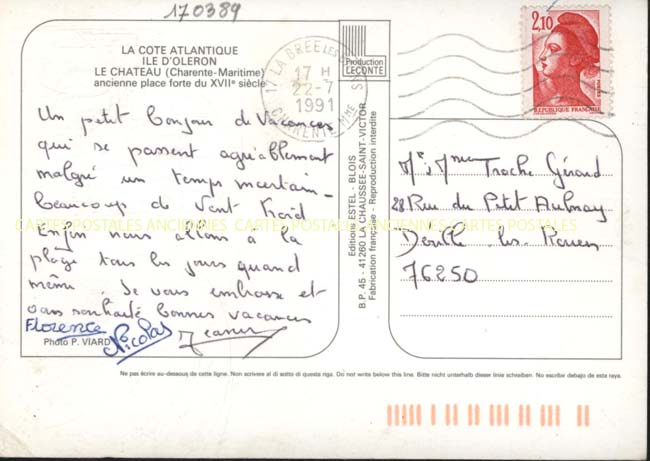 170389
LA COTE ATLANTIQUE
ILE D'OLERON
LE CHATEAU (Charente-Maritime)
ancienne place forte du XVIIe siècle
Production
LECONTE
17 LA BREE LES
17 H
22-7
1991
CHARENTE MME
2,10
REPUBLIQUE FRANÇAISE
Un petit bonjour de Vacances
qui se passent agréablement
malgré un temps incertain -
beaucoup de Vent froid
Enfin nous allons à la
plage tous les jours quand
même. Je vous embrasse et
vous souhaite bonnes vacances
Florence Nicolas
Photo P. VIARD
Editions ESTEL - BLOIS
B.P. 45 - 41260 LA CHAUSSEE-SAINT-VICTOR
Fabrication française - Reproduction interdite
Mr & Mme Troche Gérard
28 Rue du Petit Aulnay
Deville les Rouen
76250
CARTES POSTALES ANCIENNES CARTES POSTALES ANCIENNES CARTES POSTALES
Ne pas écrire au-dessous de cette ligne. Non scrivere al di sotto di questa riga. Do not write below this line. Bitte nicht unterhalb dieser linie schreiben. No escribir debajo de esta raya.